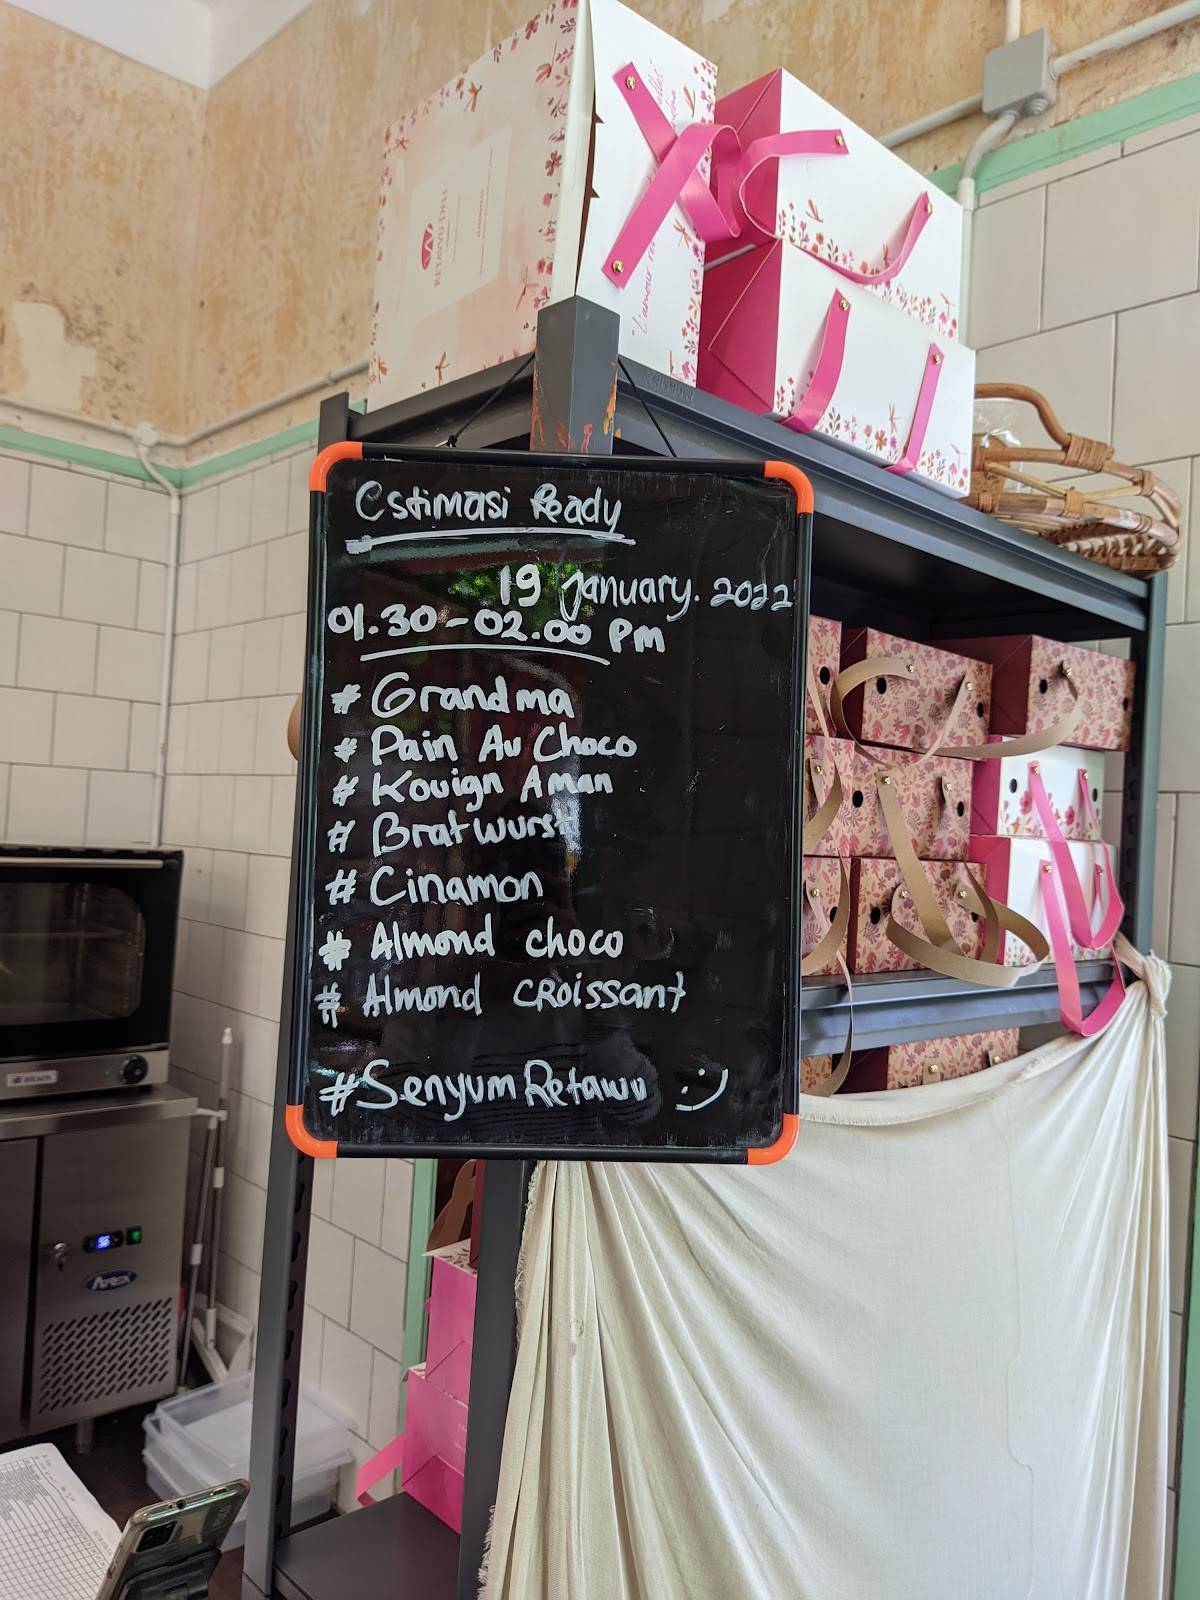 Estimasi Ready
19 January. 2022
01.30-02.00 PM
# Grandma
# Pain Au Choco
# Kouign Aman
# Bratwurst
# Cinamon
# Almond choco
# Almond CRoissant
#Senyum Retawu :)
TIKI PAWLEEN
APEX